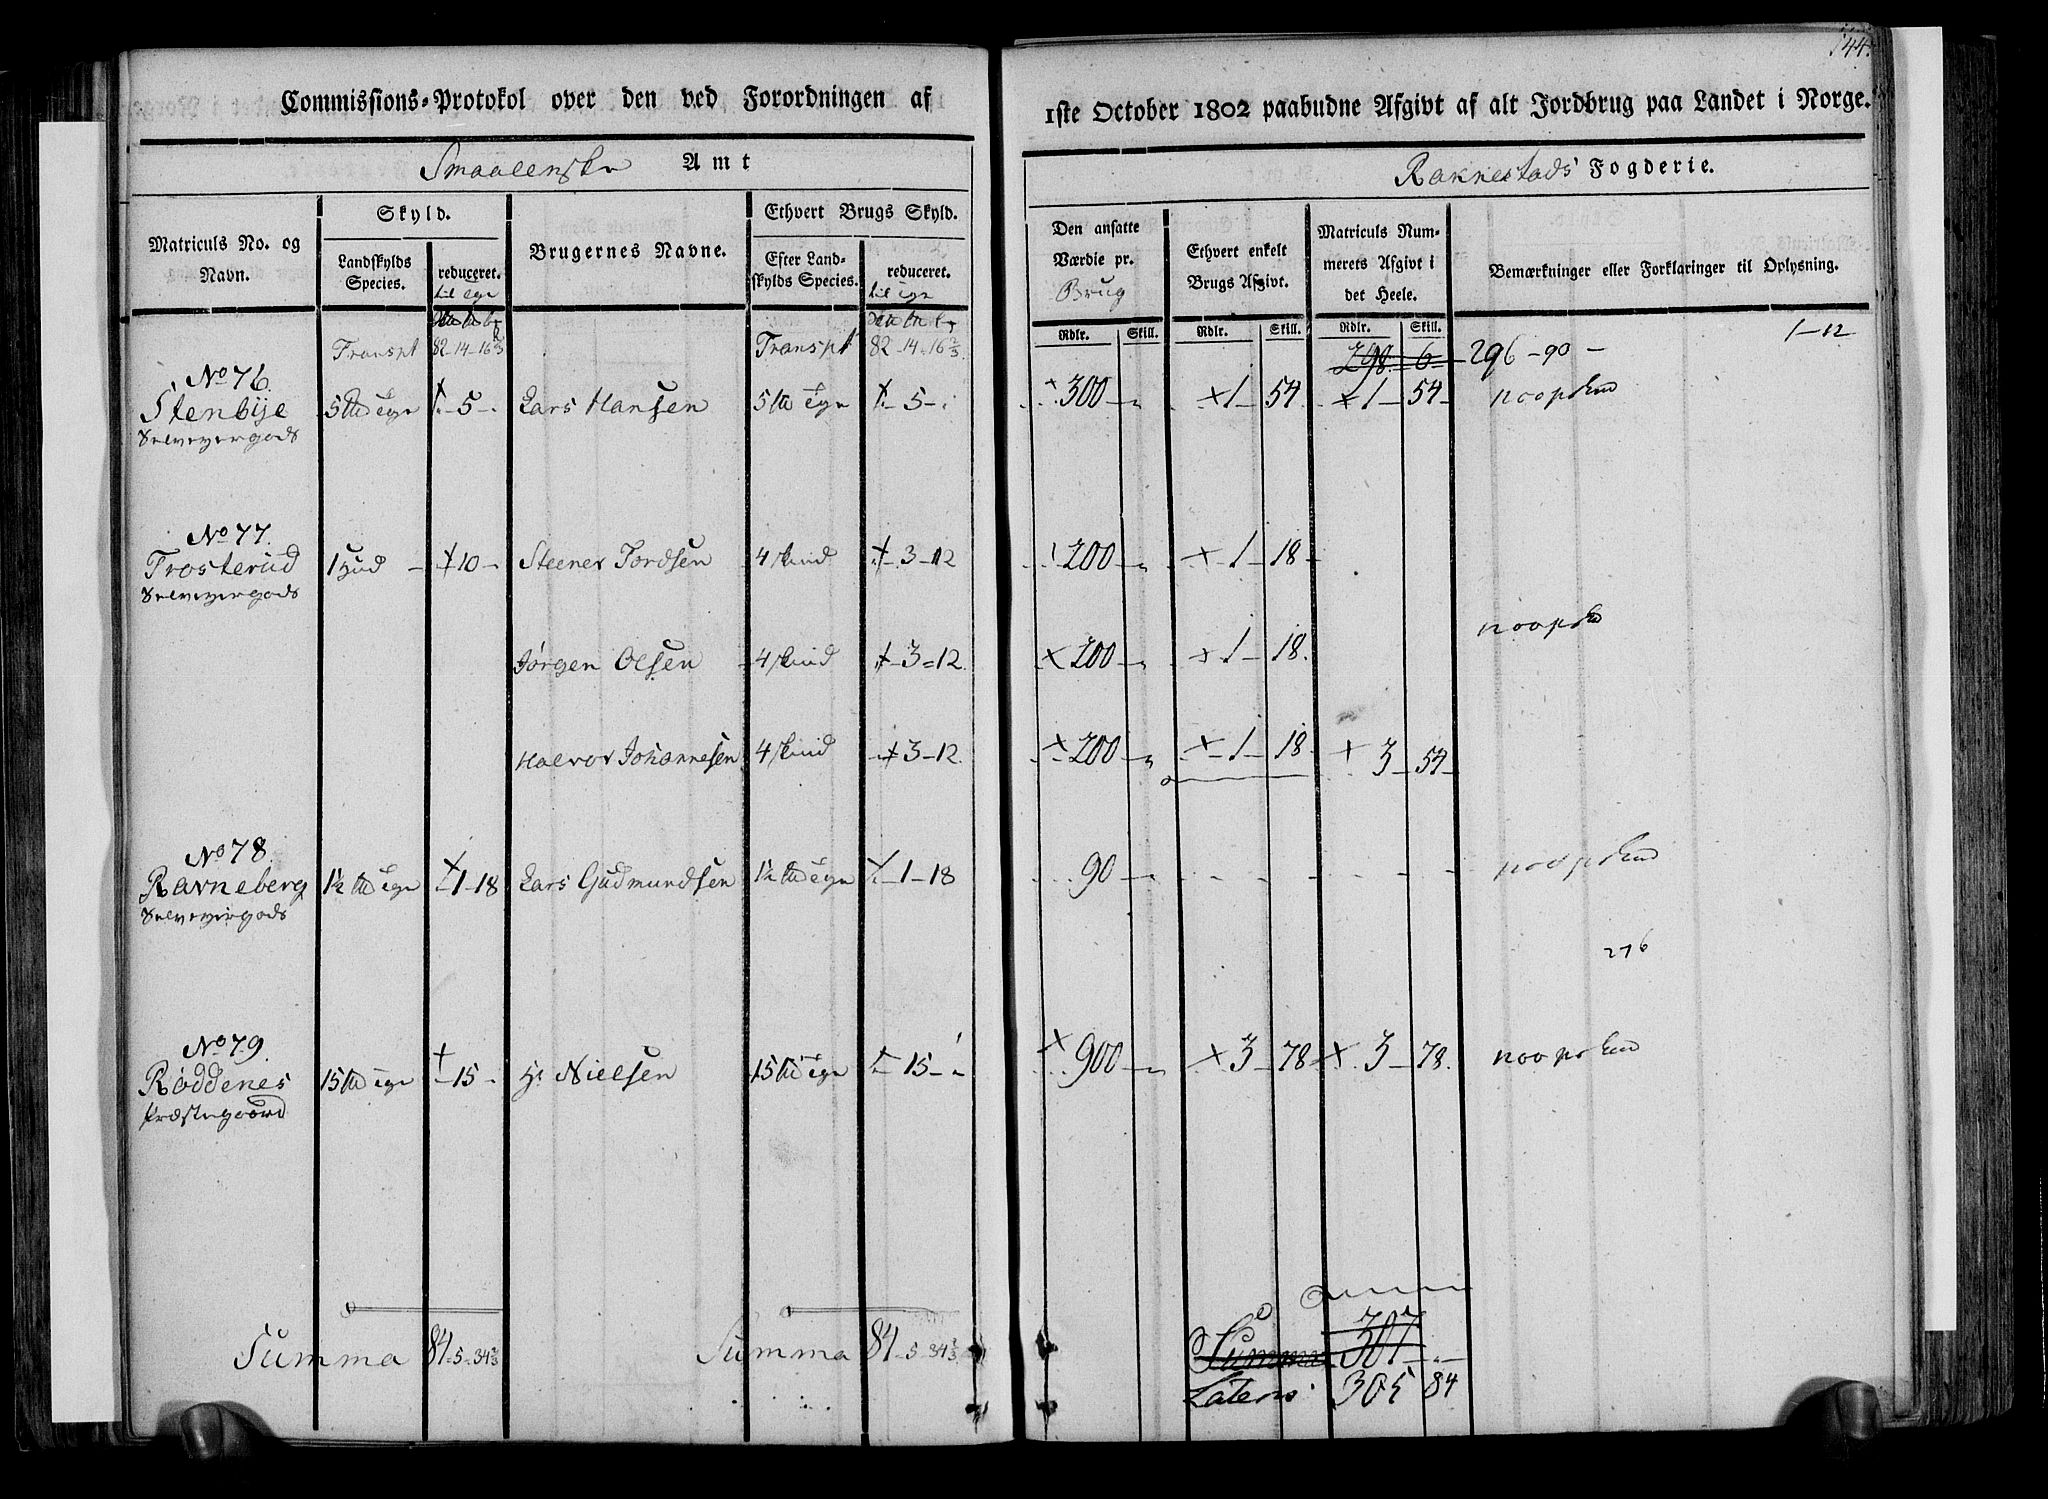 144.
Commissions-Protokol over den ved Forordningen af
1ste October 1802 paabudne Afgivt af alt Jordbrug paa Landet i Norge.
Smaalenske Amt
Raknestads Fogderie.
Matriculs No. og Navn.
Skyld.
Landskylds Species.
reduceret.
Brugernes Navne.
Ethvert Brugs Skyld.
Efter Landskylds Species.
reduceret.
Den ansatte Værdie pr. Brug
Ethvert enkelt Brugs Afgivt.
Matriculs Nummerets Afgivt i det Heele.
Bemærkninger eller Forklaringer til Oplysning.
Rdlr. Skill. Rdlr. Skill. Rdlr. Skill.
Transpt 82-14-16⅔ Transpt 82-14-16⅔ 298 6 296-90- 1-12
No 76.
Stenbije 5 -5- Lars Hansen 5 -5- 300 1 54 1 54
Selveyergods
No 77.
Trosterud 1 Hud 10 Steener Tordsen 4 skind 3-12 200 1 18
Selveyergods
Jørgen Olsen 4 skind 3-12 200 1 18
Halvor Johannesen 4 skind 3-12 200 1 18 3 54
No 78.
Ravneberg 1½ 1-18 Lars Gudmundsen 1½ 1-18 90
Selveyergods
276
No 79.
Røddenes 15 15 Hr Nielsen 15 15 900 3 78 3 78
Præstegaard
Summa 84-5-34⅔ Summa 84-5-34⅔ Summa 307
Lateris 305 84